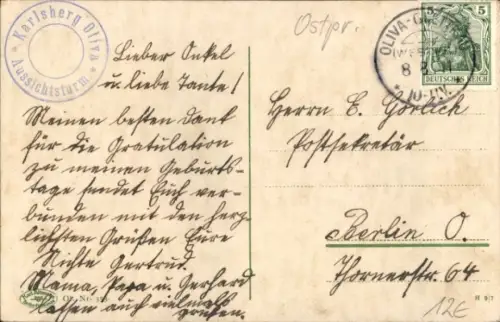 Karlsberg Oliva
* Aussichtsturm *
Ostpr.
OLIVA-
8.
10-11V.
5
DEUTSCHES REICH
Lieber Onkel
u. liebe Tante!
Meinen besten Dank
für die Gratulation
zu meinen Geburts-
tage sendet Euch ver-
bunden mit den herz
lichsten Grüßen Eure
Nichte Gertrud.
Mama, Papa u. Gerhard
lassen auch vielmals
grüßen.
Herrn E. Görlich
Postsekretär
Berlin O.
Thornerstr. 64
12E